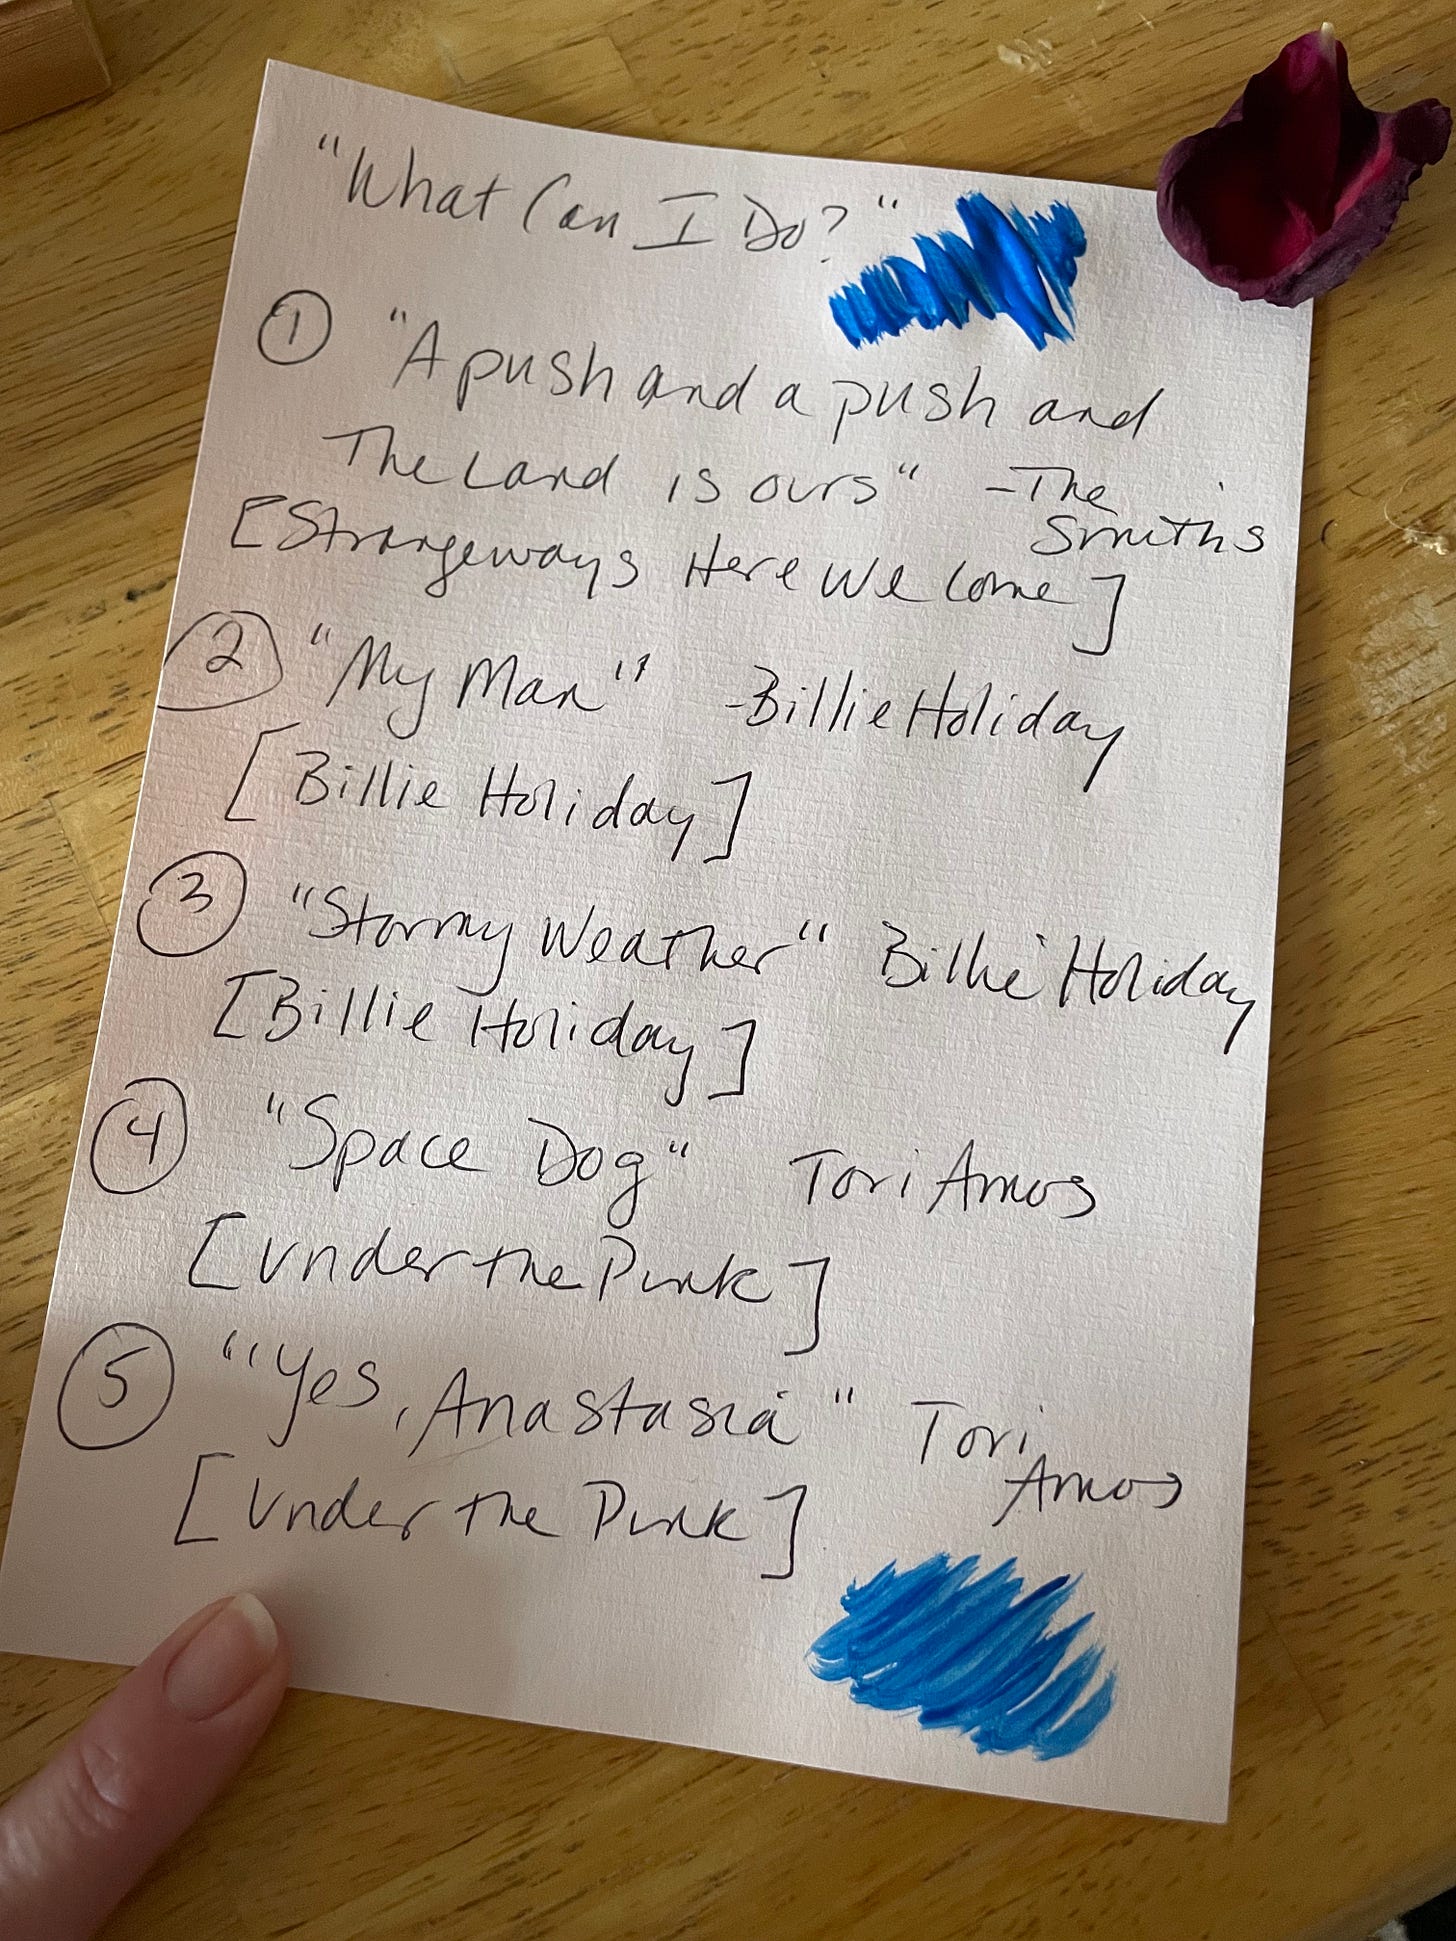 "What Can I Do?"
① "A push and a push and
The Land is ours" - The
Smiths
[Strangeways Here We Come]
② "My Man" - Billie Holiday
[Billie Holiday]
③ "Stormy Weather" Billie Holiday
[Billie Holiday]
④ "Space Dog" Tori Amos
[Under the Pink]
⑤ "Yes, Anastasia" Tori
Amos
[Under the Pink]